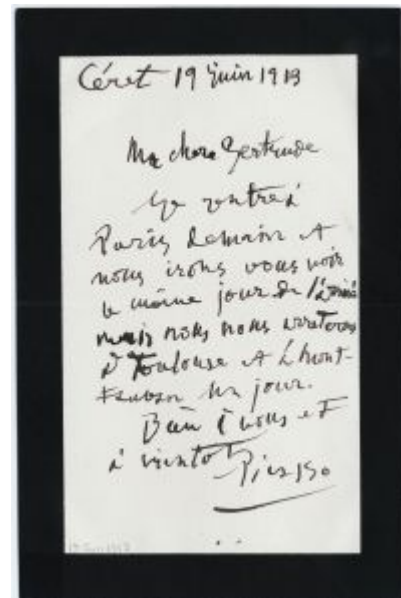 Céret 19 juin 1913
Ma chere Gertrude
Je rentre à
Paris demain et
nous irons vous voir
le même jour de l'arrivé
mais nous nous arreterons
à Toulouse et à Mont-
tauban un jour.
Bien à vous et
à vientot
Picasso